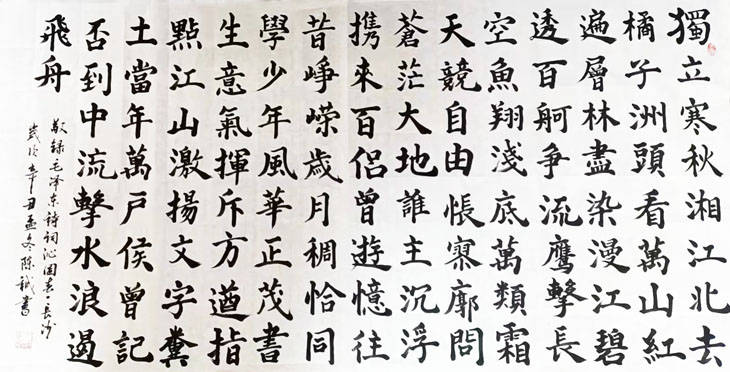 獨立寒秋湘江北去
橘子洲頭看萬山紅
遍層林盡染漫江碧
透百舸争流鹰擊長
空魚翔淺底萬類霜
天競自由悵寥廓問
蒼茫大地誰主沉浮
携來百侣曾遊憶往
昔崢嶸歲月稠恰同
學少年風華正茂書
生意氣揮斥方遒指
點江山激揚文字糞
土當年萬户侯曾記
否到中流擊水浪遏
飛舟
敬録毛泽东诗词沁园春·長沙
歲次辛丑孟冬陈書